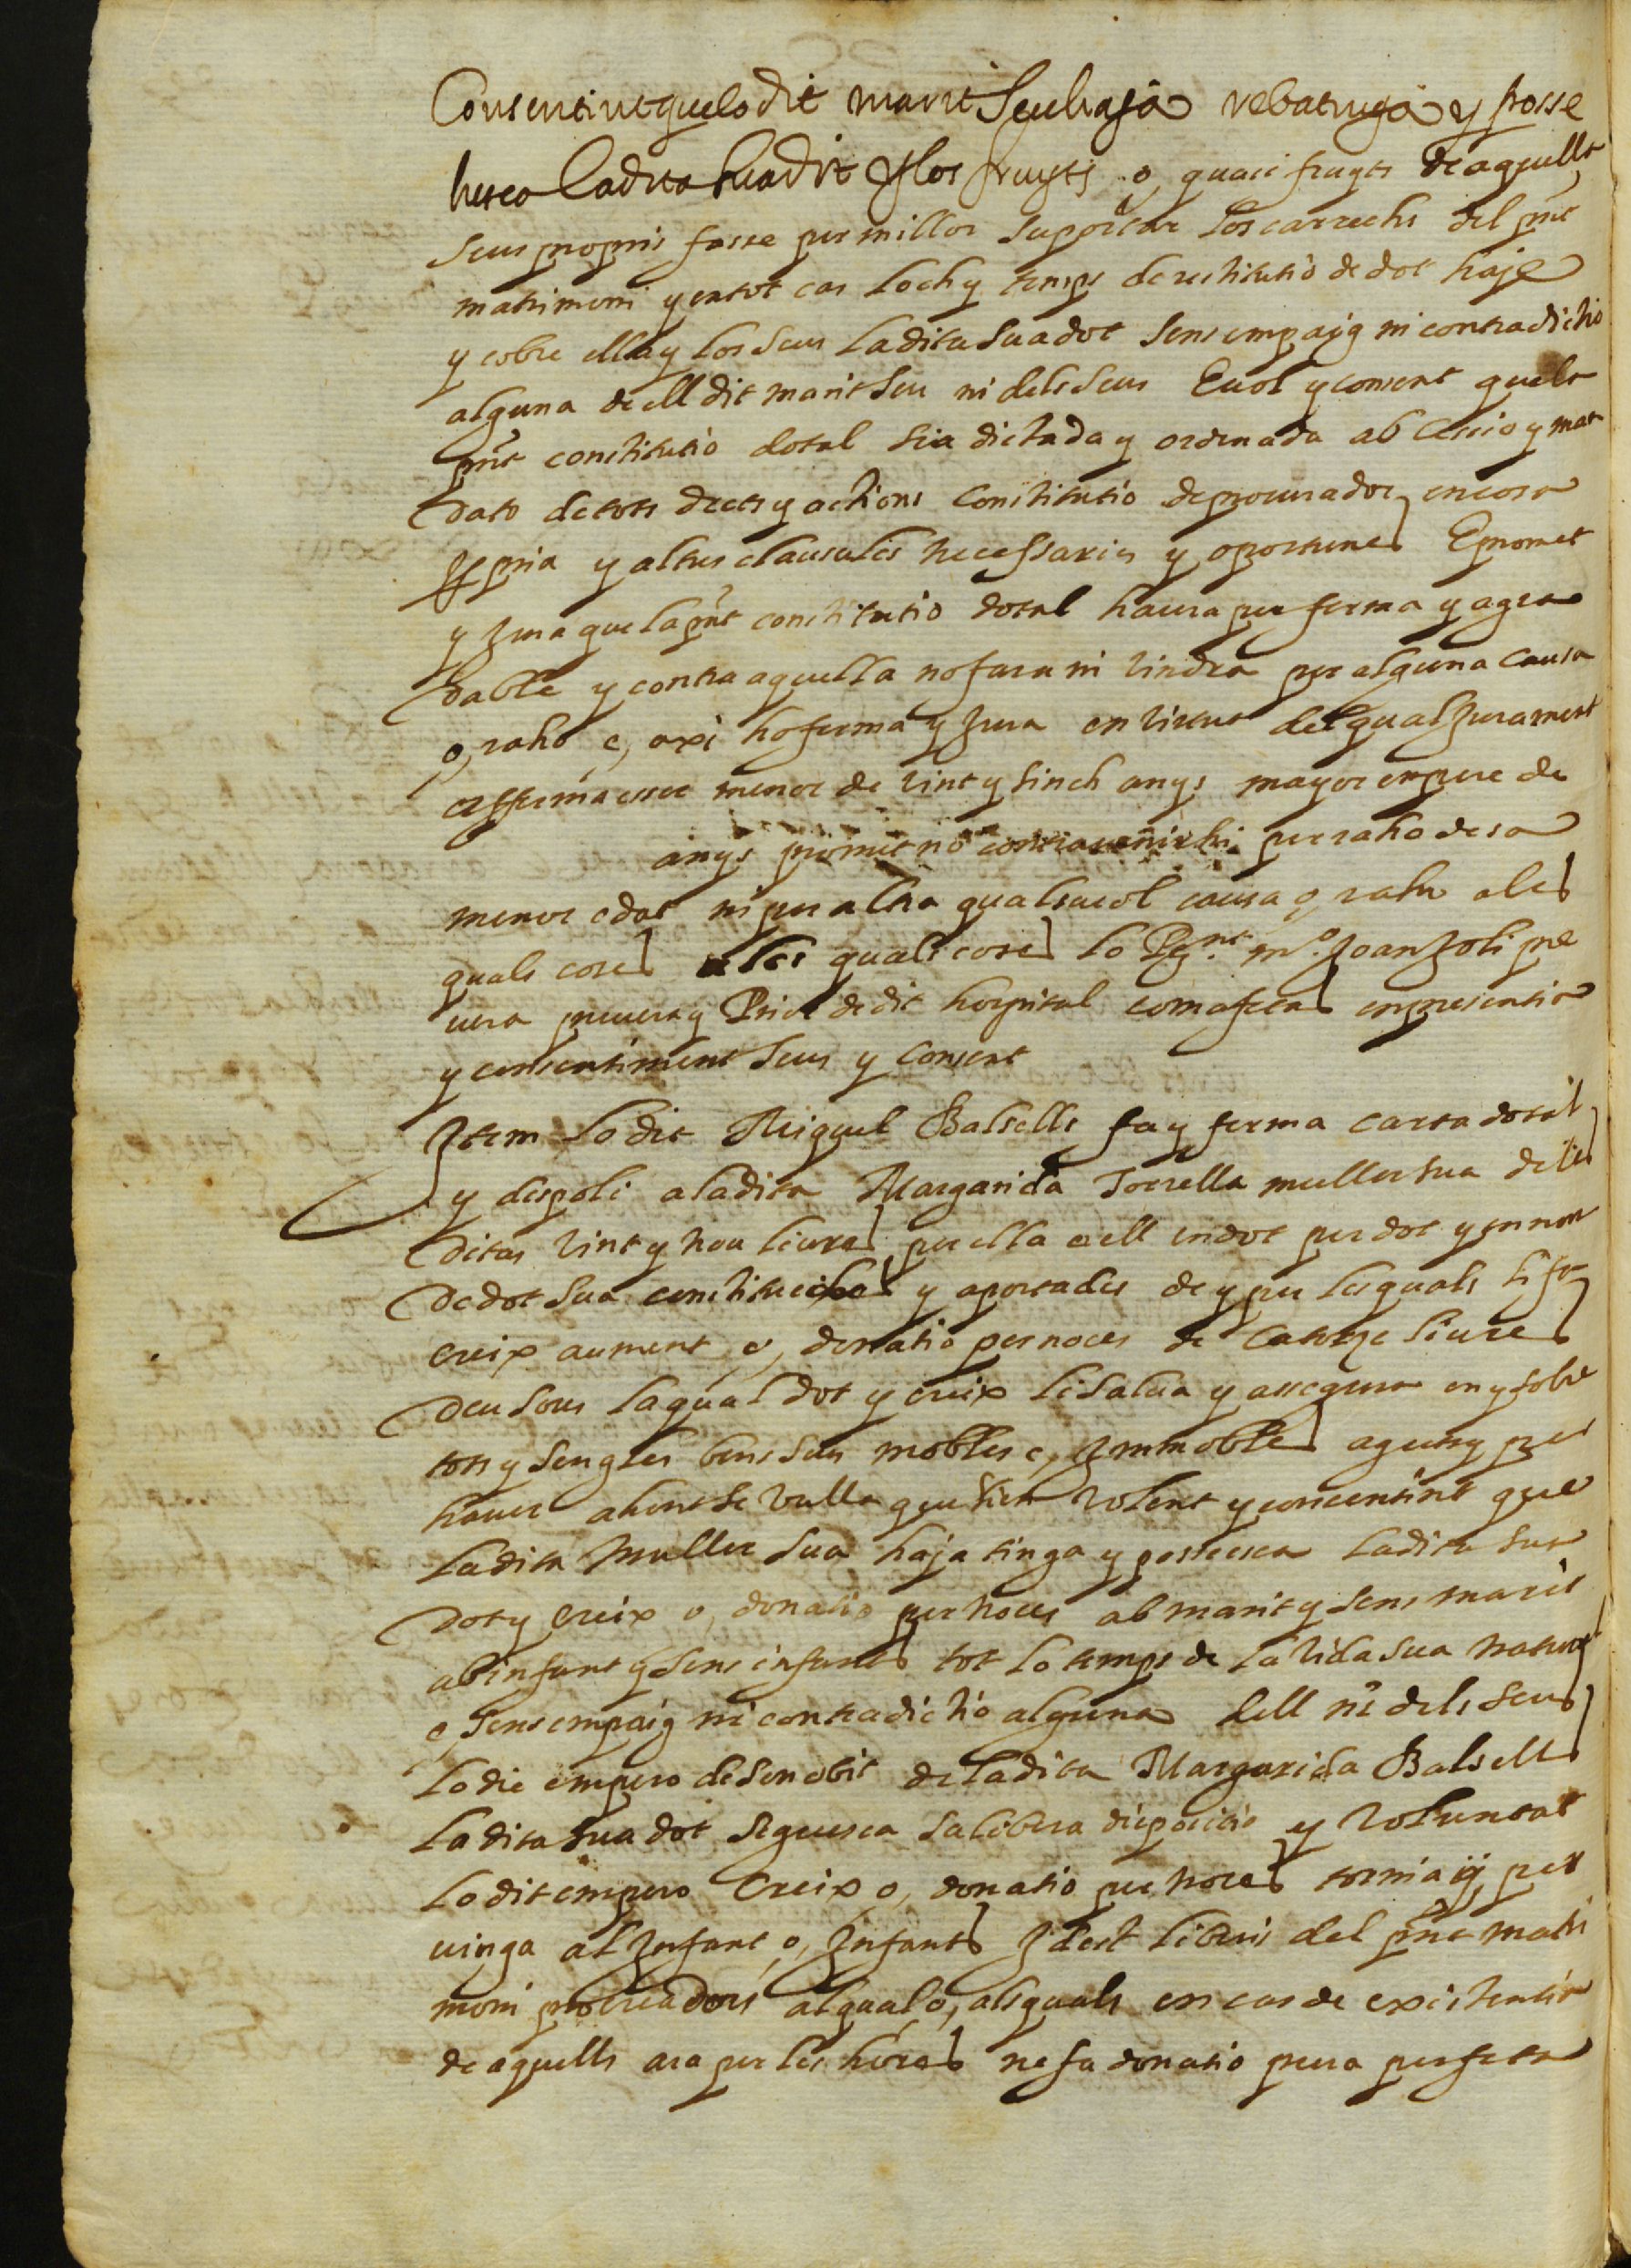 Consentint que lo dit marit Seu haja reba tinga y posse
hesca la dita sua dot y los fruyts o, quasi fruyts de aquella
Seus propris fasse per millor Suportar los carrechs del pnt
matrimoni y en tot cas loch y temps de restitutio de dot haje
y cobre ella y los Seus la dita Sua dot Sens empaig ni contradictio
alguna de ell dit marit Seu ni dels Seus E vol y consent que la
pnt constitutio dotal sia dictada y ordenada ab Cessio y man
dato de tots drets y actions Constitutio de procurador en cosa
ppria y altres clausules necessaries y oportunes E promet
y Jura que la pnt constitutio dotal haura per ferma y agra
dable y contra aquella no fara ni vindra per alguna Causa
o, raho e, axi ho ferma y Jura en virtut del qual Jurament
afferma esser menor de vint y sinch anys mayor empero de
anys promet no contravenir hi per raho de sa
menor edat ni per altra qualsevol causa o, raho a les
quals coses a les quals coses lo Rnt mº. Joan Joli pre
vera y Prior de dit hospital com a fetas en presentia
y consentiment Seus y Consent
Item lo dit Miquel Balsells fa y ferma carta dotal
y despoli a la dita Margarida Torrella muller sua de les
ditas vint y nou liures per ella a ell en dot per dot y en nom
de dot Sua constituides y aportades de y per les quals li fa
creix aument, o, donatio per noces de Catorze liures
deu Sous la qual dot y creix li salva y assegura en y sobre
tots y Sengles bens Seus mobles e, Immobles aguts y per
haver ahont se vulla que sien volent y concentint que
la dita Muller Sua haja tinga y possehesca la dita Sua
dot y Creix o, donatio per noces ab marit y Sens marit
ab infant y Sens infants tot lo temps de la vida Sua natural
e, Sens empaig ni contradictio alguna dell ni dels Seus
lo die empero de Son obit de la dita Margarida Balsells
la dita Sua dot Seguesca Sa libera dispositio y voluntat
lo dit empero Creix o, donatio per noces tornia y per
vinga al Infant, o, Infants Idest liberis del pnt matri
moni procreadors al qual, o, als quals en cas de existentia
de aquells ara per les hores ne fa donatio pura perfeta